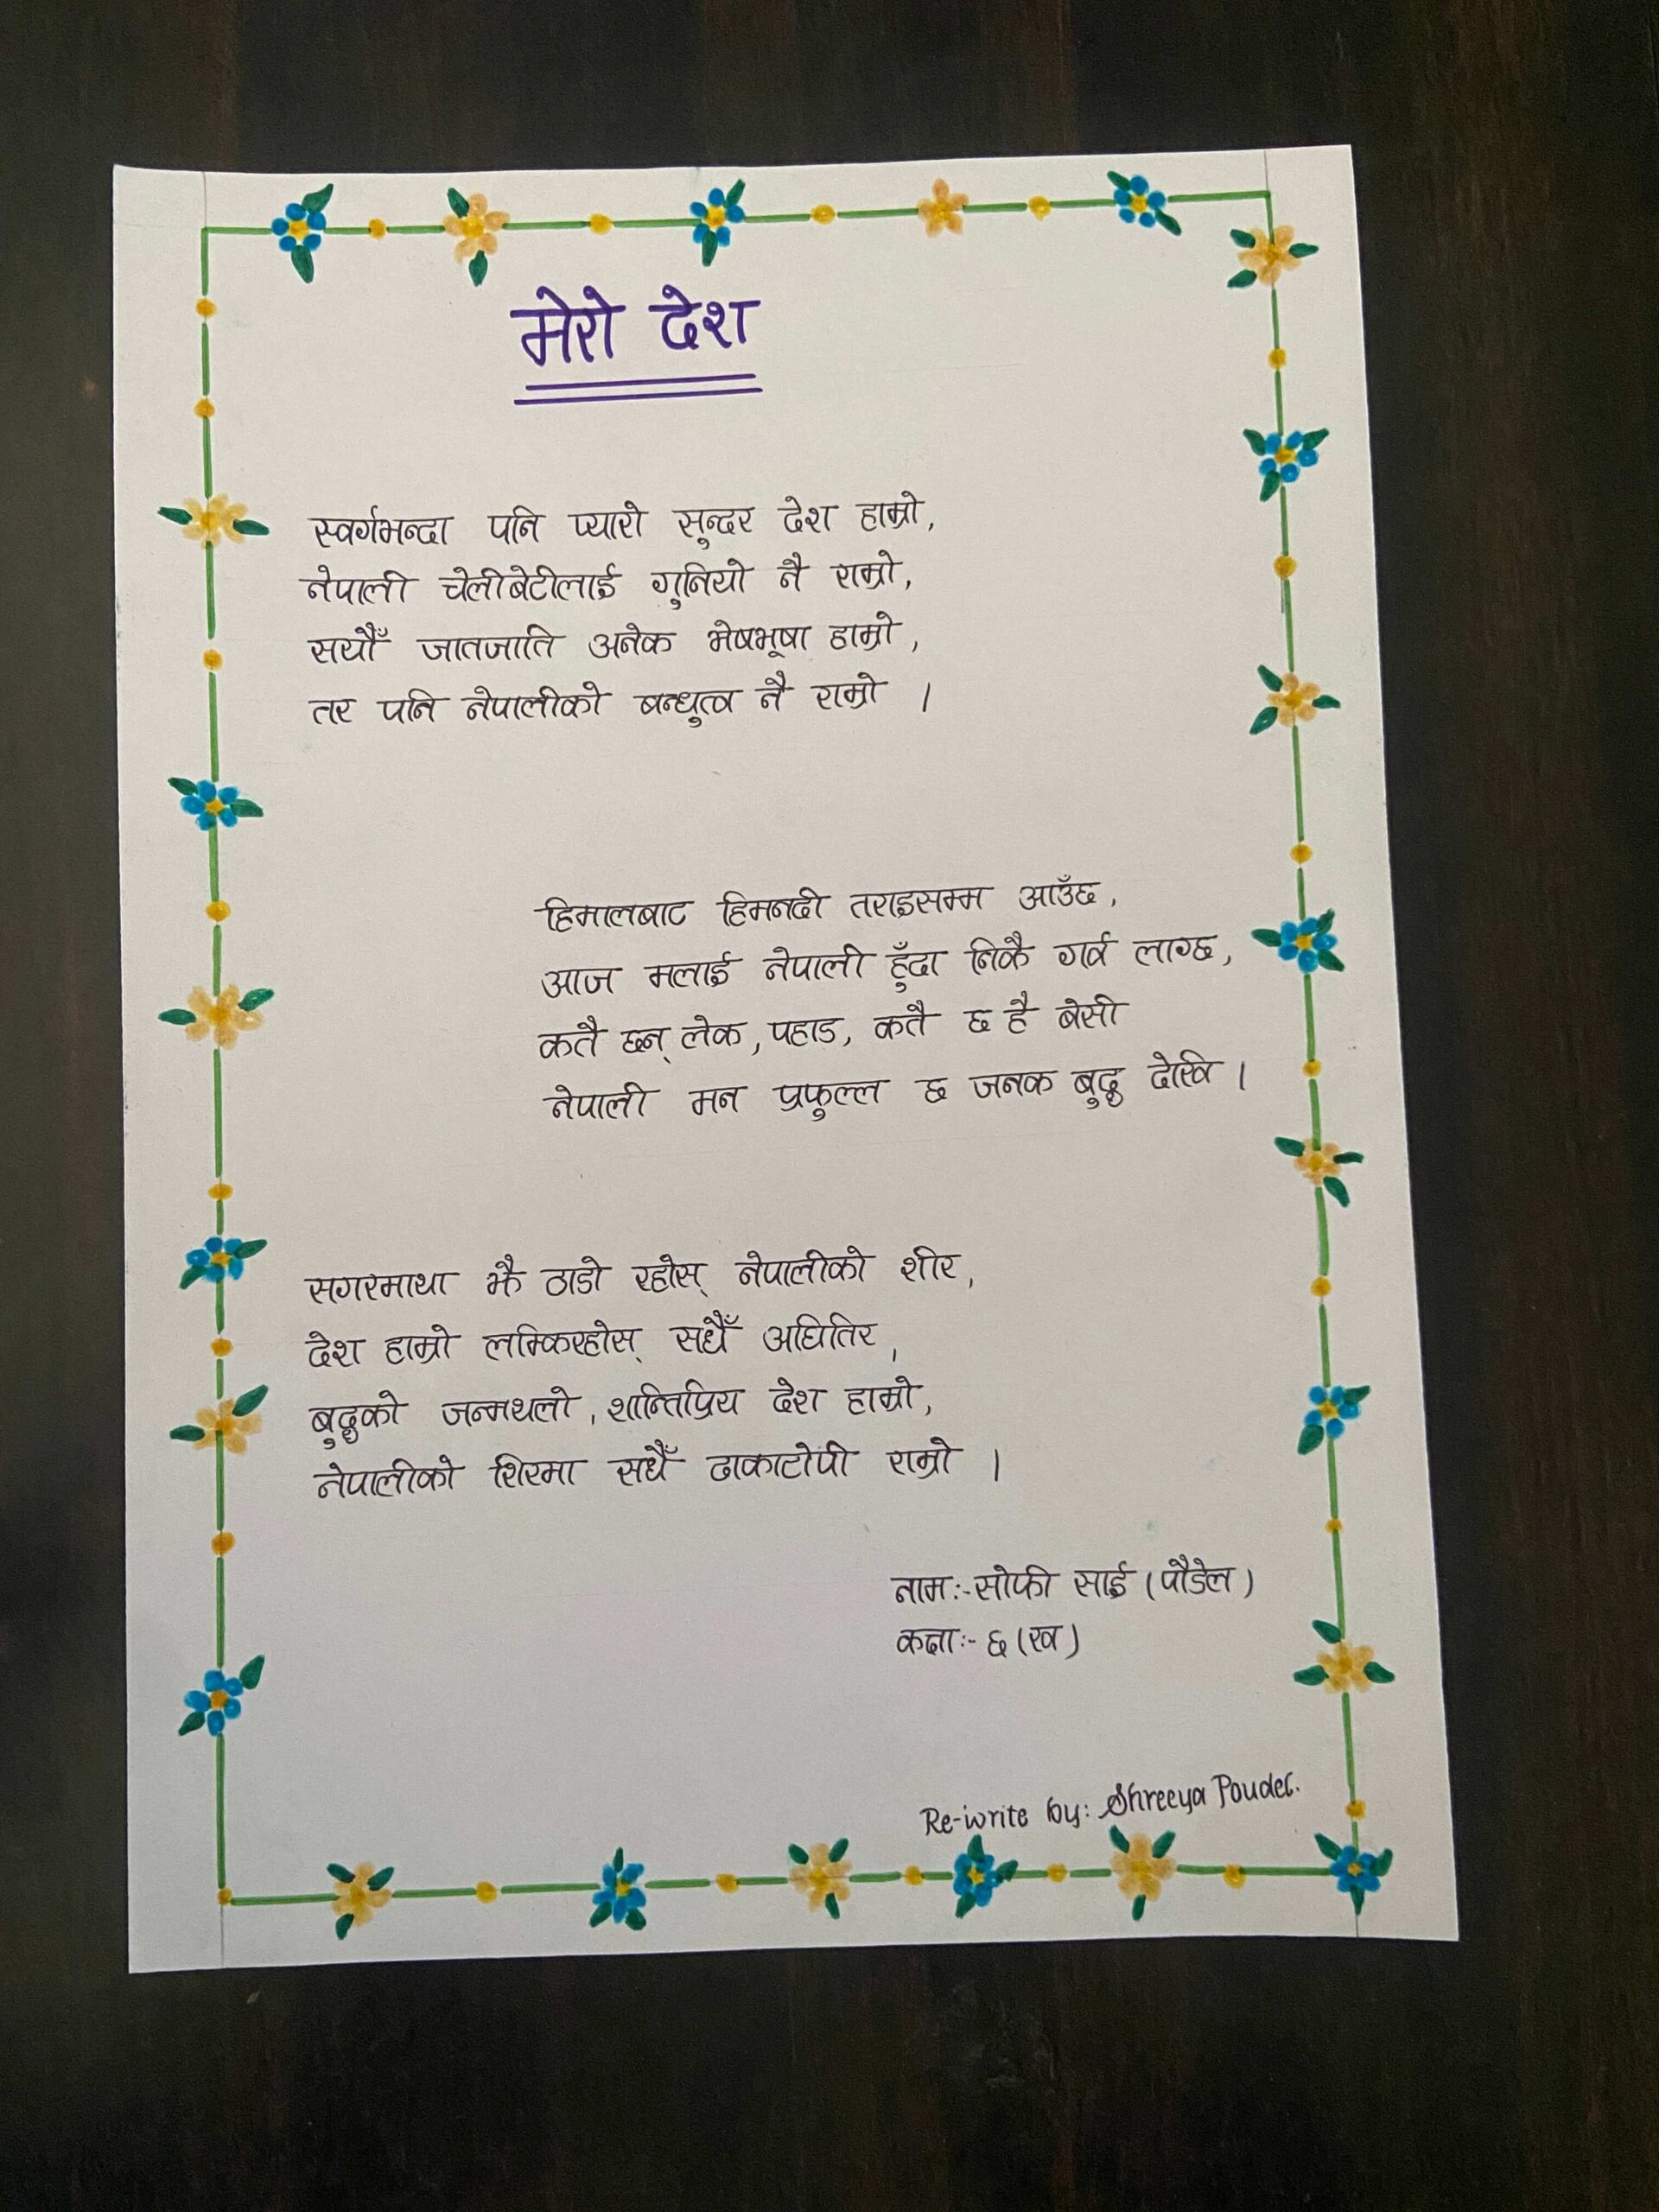 मेरो देश
स्वर्गभन्दा पनि प्यारो सुन्दर देश हाम्रो,
नेपाली चेलीबेटीलाई गुनियो नै राम्रो,
सयौँ जातजाति अनेक भेषभूषा हाम्रो,
तर पनि नेपालीको बन्धुत्व नै राम्रो ।
हिमालबाट हिमनदी तराइसम्म आउँछ,
आज मलाई नेपाली हुँदा निकै गर्व लाग्छ,
कतै छन् लेक, पहाड, कतै छ है बेसी
नेपाली मन प्रफुल्ल छ जनक बुद्ध देखि ।
सगरमाथा झै ठाडो रहोस् नेपालीको शीर,
देश हाम्रो लम्किरहोस् सधैँ अघितिर,
बुद्धको जन्मथलो, शान्तिप्रिय देश हाम्रो,
नेपालीको शिरमा सधैँ ढाकाटोपी राम्रो ।
नामः- सोफी साई (पौडेल)
कक्षाः- ६ (ख)
Re-write by: Shreeya Poudel.